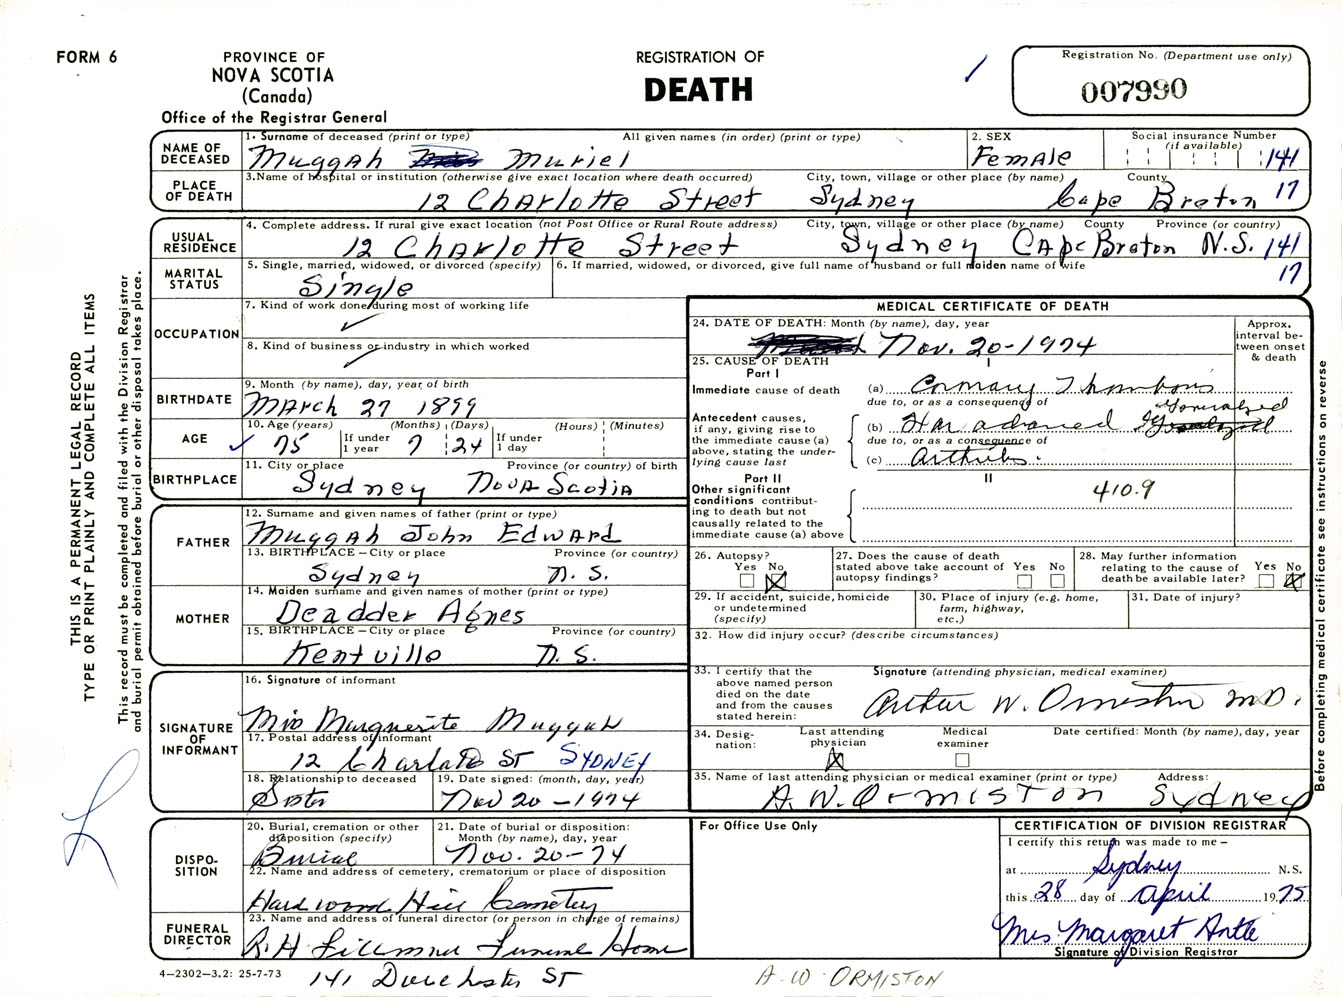 FORM 6
PROVINCE OF
NOVA SCOTIA
(Canada)
Office of the Registrar General
REGISTRATION OF
DEATH
Registration No. (Department use only)
007990
NAME OF DECEASED
1. Surname of deceased (print or type) All given names (in order) (print or type)
Muggah Muriel
2. SEX
Female
Social insurance Number
(if available)
141
PLACE OF DEATH
3.Name of hospital or institution (otherwise give exact location where death occurred) City, town, village or other place (by name) County
12 Charlotte Street Sydney Cape Breton 17
USUAL RESIDENCE
4. Complete address. If rural give exact location (not Post Office or Rural Route address) City, town, village or other place (by name) County Province (or country)
12 Charlotte Street Sydney Cape Breton N.S. 141
17
MARITAL STATUS
5. Single, married, widowed, or divorced (specify)
Single
6. If married, widowed, or divorced, give full name of husband or full maiden name of wife
OCCUPATION
7. Kind of work done during most of working life
8. Kind of business or industry in which worked
BIRTHDATE
9. Month (by name), day, year of birth
March 27 1899
AGE
10. Age (years) (Months) (Days) (Hours) (Minutes)
75 If under 1 year 7 24 If under 1 day
BIRTHPLACE
11. City or place Province (or country) of birth
Sydney Nova Scotia
FATHER
12. Surname and given names of father (print or type)
Muggah John Edward
13. BIRTHPLACE – City or place Province (or country)
Sydney N.S.
MOTHER
14. Maiden surname and given names of mother (print or type)
Deadder Agnes
15. BIRTHPLACE – City or place Province (or country)
Kentville N.S.
SIGNATURE OF INFORMANT
16. Signature of informant
Miss Marguerite Muggah
17. Postal address of informant
12 Charlotte ST SYDNEY
18. Relationship to deceased
Sister
19. Date signed: (month, day, year)
Nov 20 - 1974
DISPOSITION
20. Burial, cremation or other disposition (specify)
Burial
21. Date of burial or disposition: Month (by name), day, year
Nov. 20-74
22. Name and address of cemetery, crematorium or place of disposition
Hardwood Hill Cemetery
FUNERAL DIRECTOR
23. Name and address of funeral director (or person in charge of remains)
R.H. Fillmore Funeral Home
4–2302–3.2: 25-7-73
141 Dorchester ST
MEDICAL CERTIFICATE OF DEATH
24. DATE OF DEATH: Month (by name), day, year
Nov. 20-1974
Approx. interval between onset & death
25. CAUSE OF DEATH
Part I
I
Immediate cause of death
(a) Coronary Thrombosis
due to, or as a consequence of
Antecedent causes, if any, giving rise to the immediate cause (a) above, stating the underlying cause last
Generalized
(b) Far advanced
due to, or as a consequence of
(c) Arthritis.
Part II
II
Other significant conditions contributing to death but not causally related to the immediate cause (a) above
410.9
26. Autopsy?
Yes No
27. Does the cause of death stated above take account of autopsy findings?
Yes No
28. May further information relating to the cause of death be available later?
Yes No
29. If accident, suicide, homicide or undetermined (specify)
30. Place of injury (e.g. home, farm, highway, etc.)
31. Date of injury?
32. How did injury occur? (describe circumstances)
33. I certify that the above named person died on the date and from the causes stated herein:
Signature (attending physician, medical examiner)
Arthur W. Ormiston M.D.
34. Designation:
Last attending physician
Medical examiner
Date certified: Month (by name), day, year
35. Name of last attending physician or medical examiner (print or type) Address:
A.W. Ormiston Sydney
For Office Use Only
CERTIFICATION OF DIVISION REGISTRAR
I certify this return was made to me –
at Sydney N.S.
this 28 day of April 1975
Mrs Margaret Antle
Signature of Division Registrar
A.W. ORMISTON
THIS IS A PERMANENT LEGAL RECORD
TYPE OR PRINT PLAINLY AND COMPLETE ALL ITEMS
This record must be completed and filed with the Division Registrar
and burial permit obtained before burial or other disposal takes place.
Before completing medical certificate see instructions on reverse